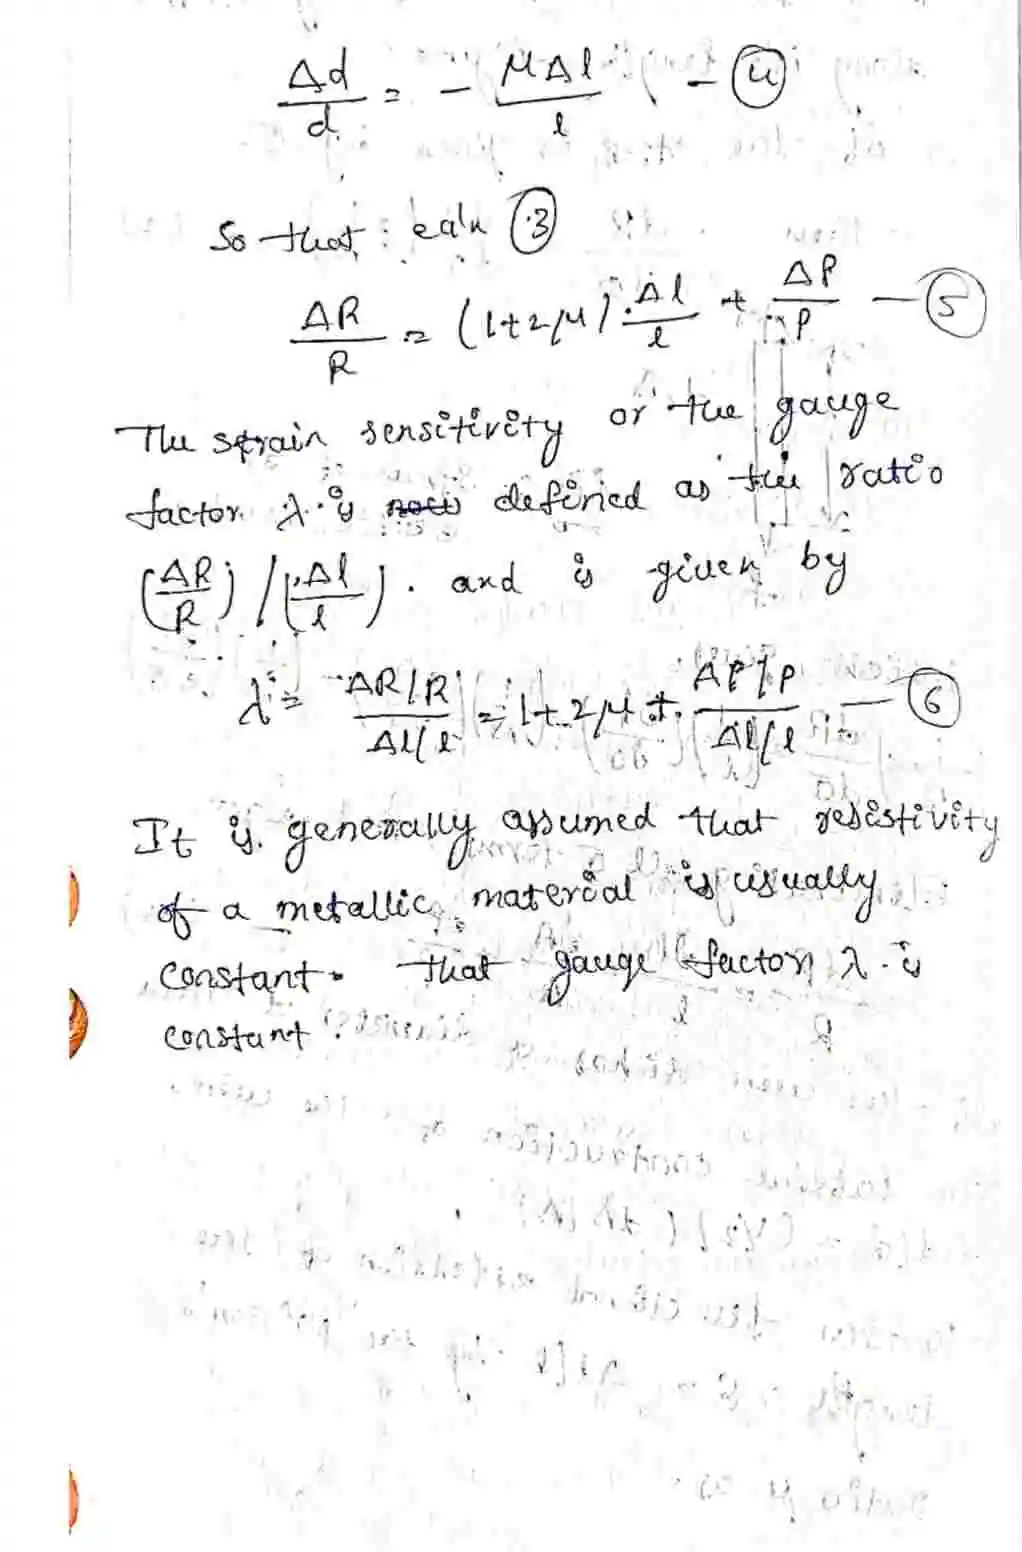 Δd/d = - μΔl/l - ④
So that, eq'n ③
ΔR/R = (1+2μ) Δl/l + Δρ/ρ - ⑤
The strain sensitivity or the gauge
factor λ is defined as the ratio
(ΔR/R) / (Δl/l). and is given by
λ = ΔR/R / Δl/l = 1+2μ + Δρ/ρ / Δl/l - ⑥
It is generally assumed that resistivity
of a metallic material is usually
constant. that gauge factor λ is
constant.